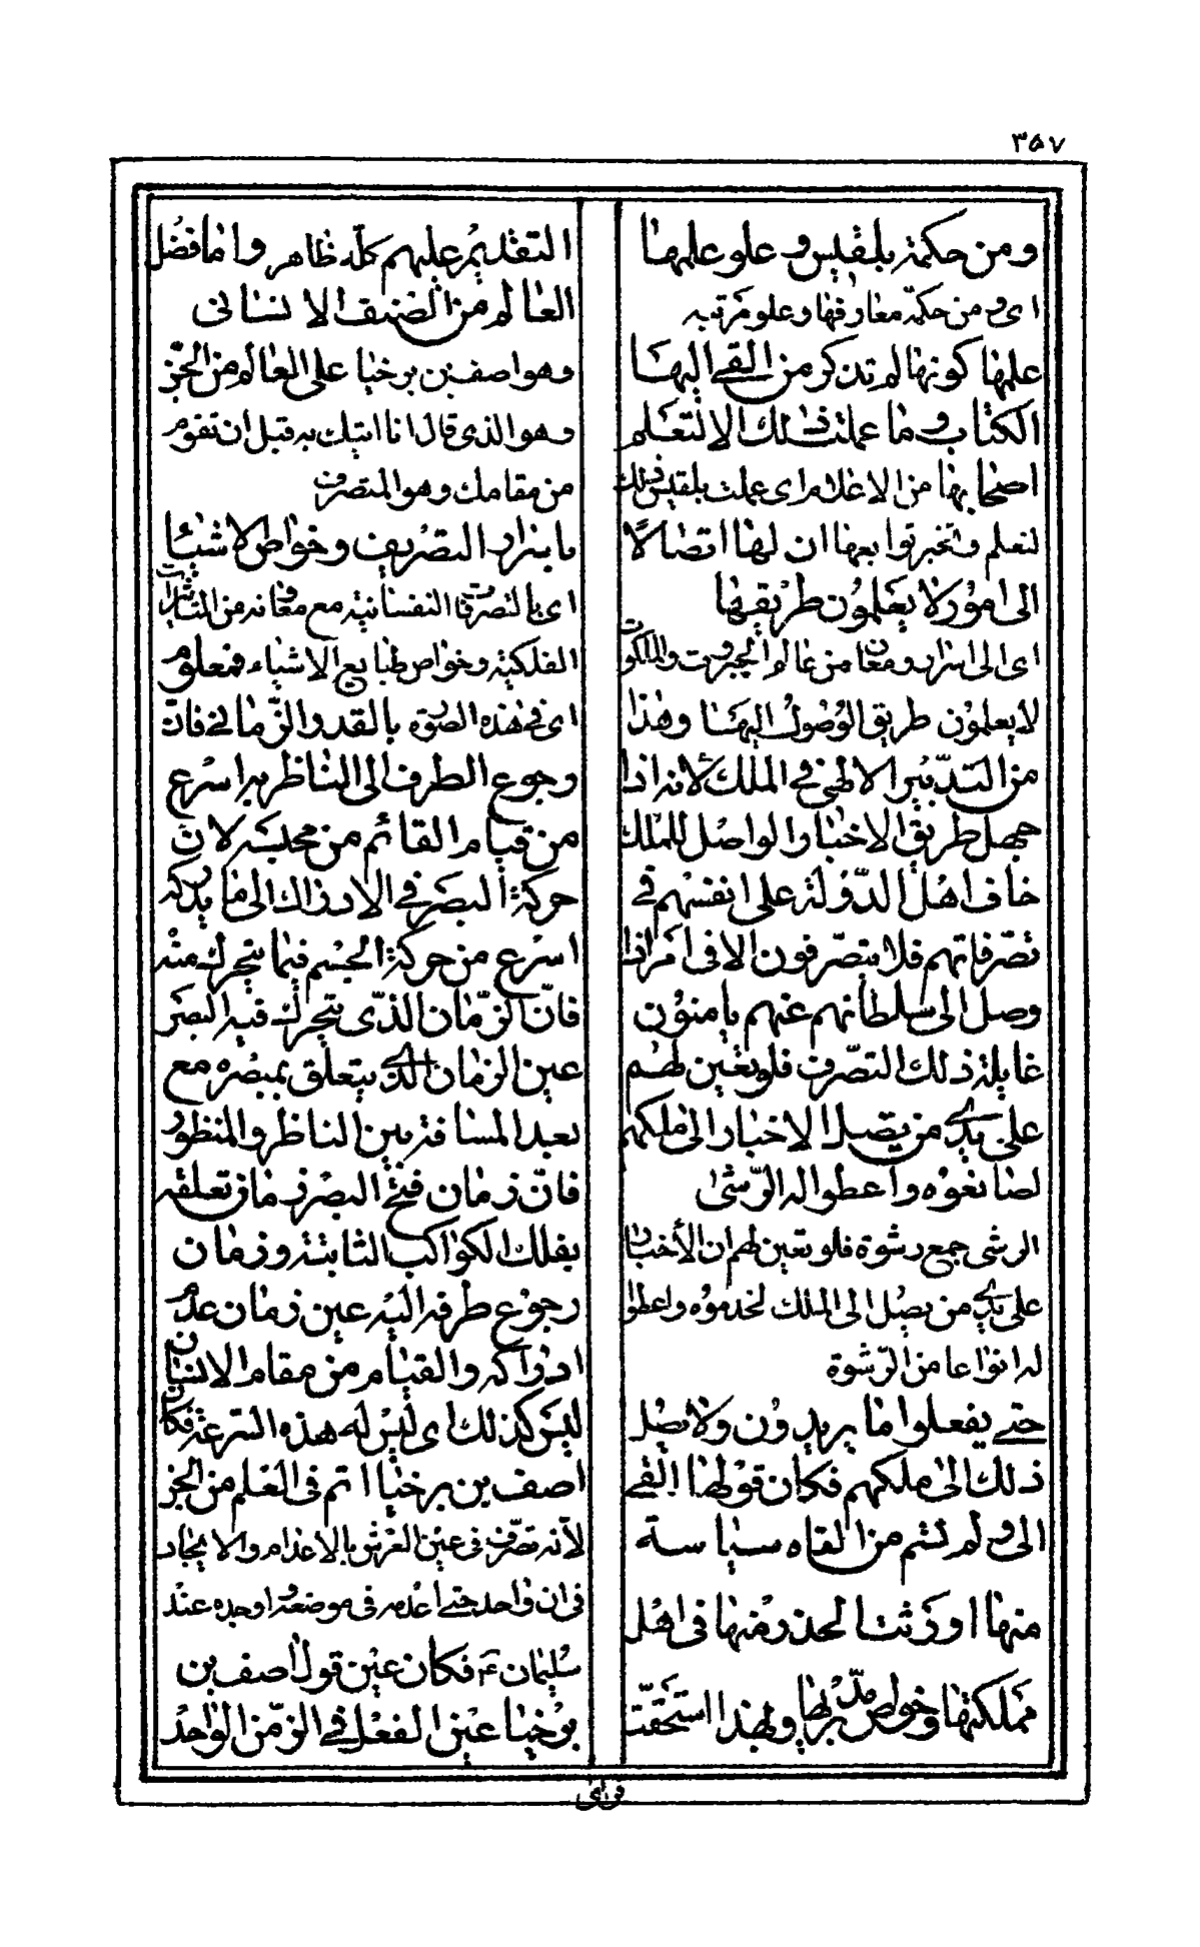 ۳۵۷
ومن حكمة بلقيس وعلو علمها
اى ومن حكمة معارفها وعلو مرتبه
علمها كونها لم تذكر من القى اليها
الكتاب وما عملت ذلك الا لتعلم
اصحابها من الاعلام اى عملت بلقيس ذلك
لتعلم وتخبر توابعها ان لها اتصالًا
الى امور لا يعلمون طريقها
اى الى اسرار ومعان من عالم الجبروت والملكوت
لا يعلمون طريق الوصول اليها وهذا
من التدبير الالهى فى الملك لانه اذا
جهل طريق الاخبار الواصل للملك
خاف اهل الدّولة على انفسهم فى
تصرّفاتهم فلا يتصرّفون الا فى امر اذا
وصل الى سلطانهم عنهم يامنون
غايلة ذلك التصرّف فلو تعين لهم
على يدى من يصل الاخبار الى ملكهم
لصانعوه واعطوا له الرّشى
الرشى جمع رشوة فلو تعين لهم ان الأخبار
على يدى من يصل الى الملك لخدموه واعطوا
له انواعا من الرّشوة
حتى يفعلوا ما يريدون ولا يصل
ذلك الى ملكهم فكان قولها القى
الى ولم تسم من القاه سياسة
منها اورثت الحذر منها فى اهل
مملكتها وخواص مدّبريها وبهذا استحقّت
التقديم عليهم كلّه ظاهر واما فضل
العالم من الصنف الانسانى
وهو اصف بن برخيا على العالم من الجنّ
وهو الذى قال انا اتيك به قبل ان تقوم
من مقامك وهو المتصرف
باسرار التصريف وخواص الاشيا
اى بالتصرفات النفسانية مع معاونه من التاثيرات
الفلكية وخواص طبايع الاشياء فمعلوم
اى فى هذه الصورة بالقدر الزّمانى فانّ
رجوع الطرف الى الناظر به اسرع
من قيام القائم من مجلسه لان
حركة البصر فى الادراك الى ما يدركه
اسرع من حركة الجسم فيما يتحرك منه
فانّ الزّمان الذّى يتحرك فيه البصر
عين الزمان الذى يتعلق بمبصره مع
بعد المسافة بين الناظر والمنظور
فانّ زمان فتح البصر زمان تعلقه
بفلك الكواكب الثابتة وزمان
رجوع طرفه اليه عين زمان عدم
ادراكه والقيام من مقام الانسان
ليس كذلك اى ليس له هذه السّرعة فكان
اصف بن برخيا اتم فى العلم من الجن
لأنه تصّرف فى عين العرش بالاعدام والايجاد
فى ان واحد حتى اعدمه فى موضعه واوجده عند
سليمان عٓ فكان عين قول اصف بن
برخيا عين الفعل فى الزّمن الواحد